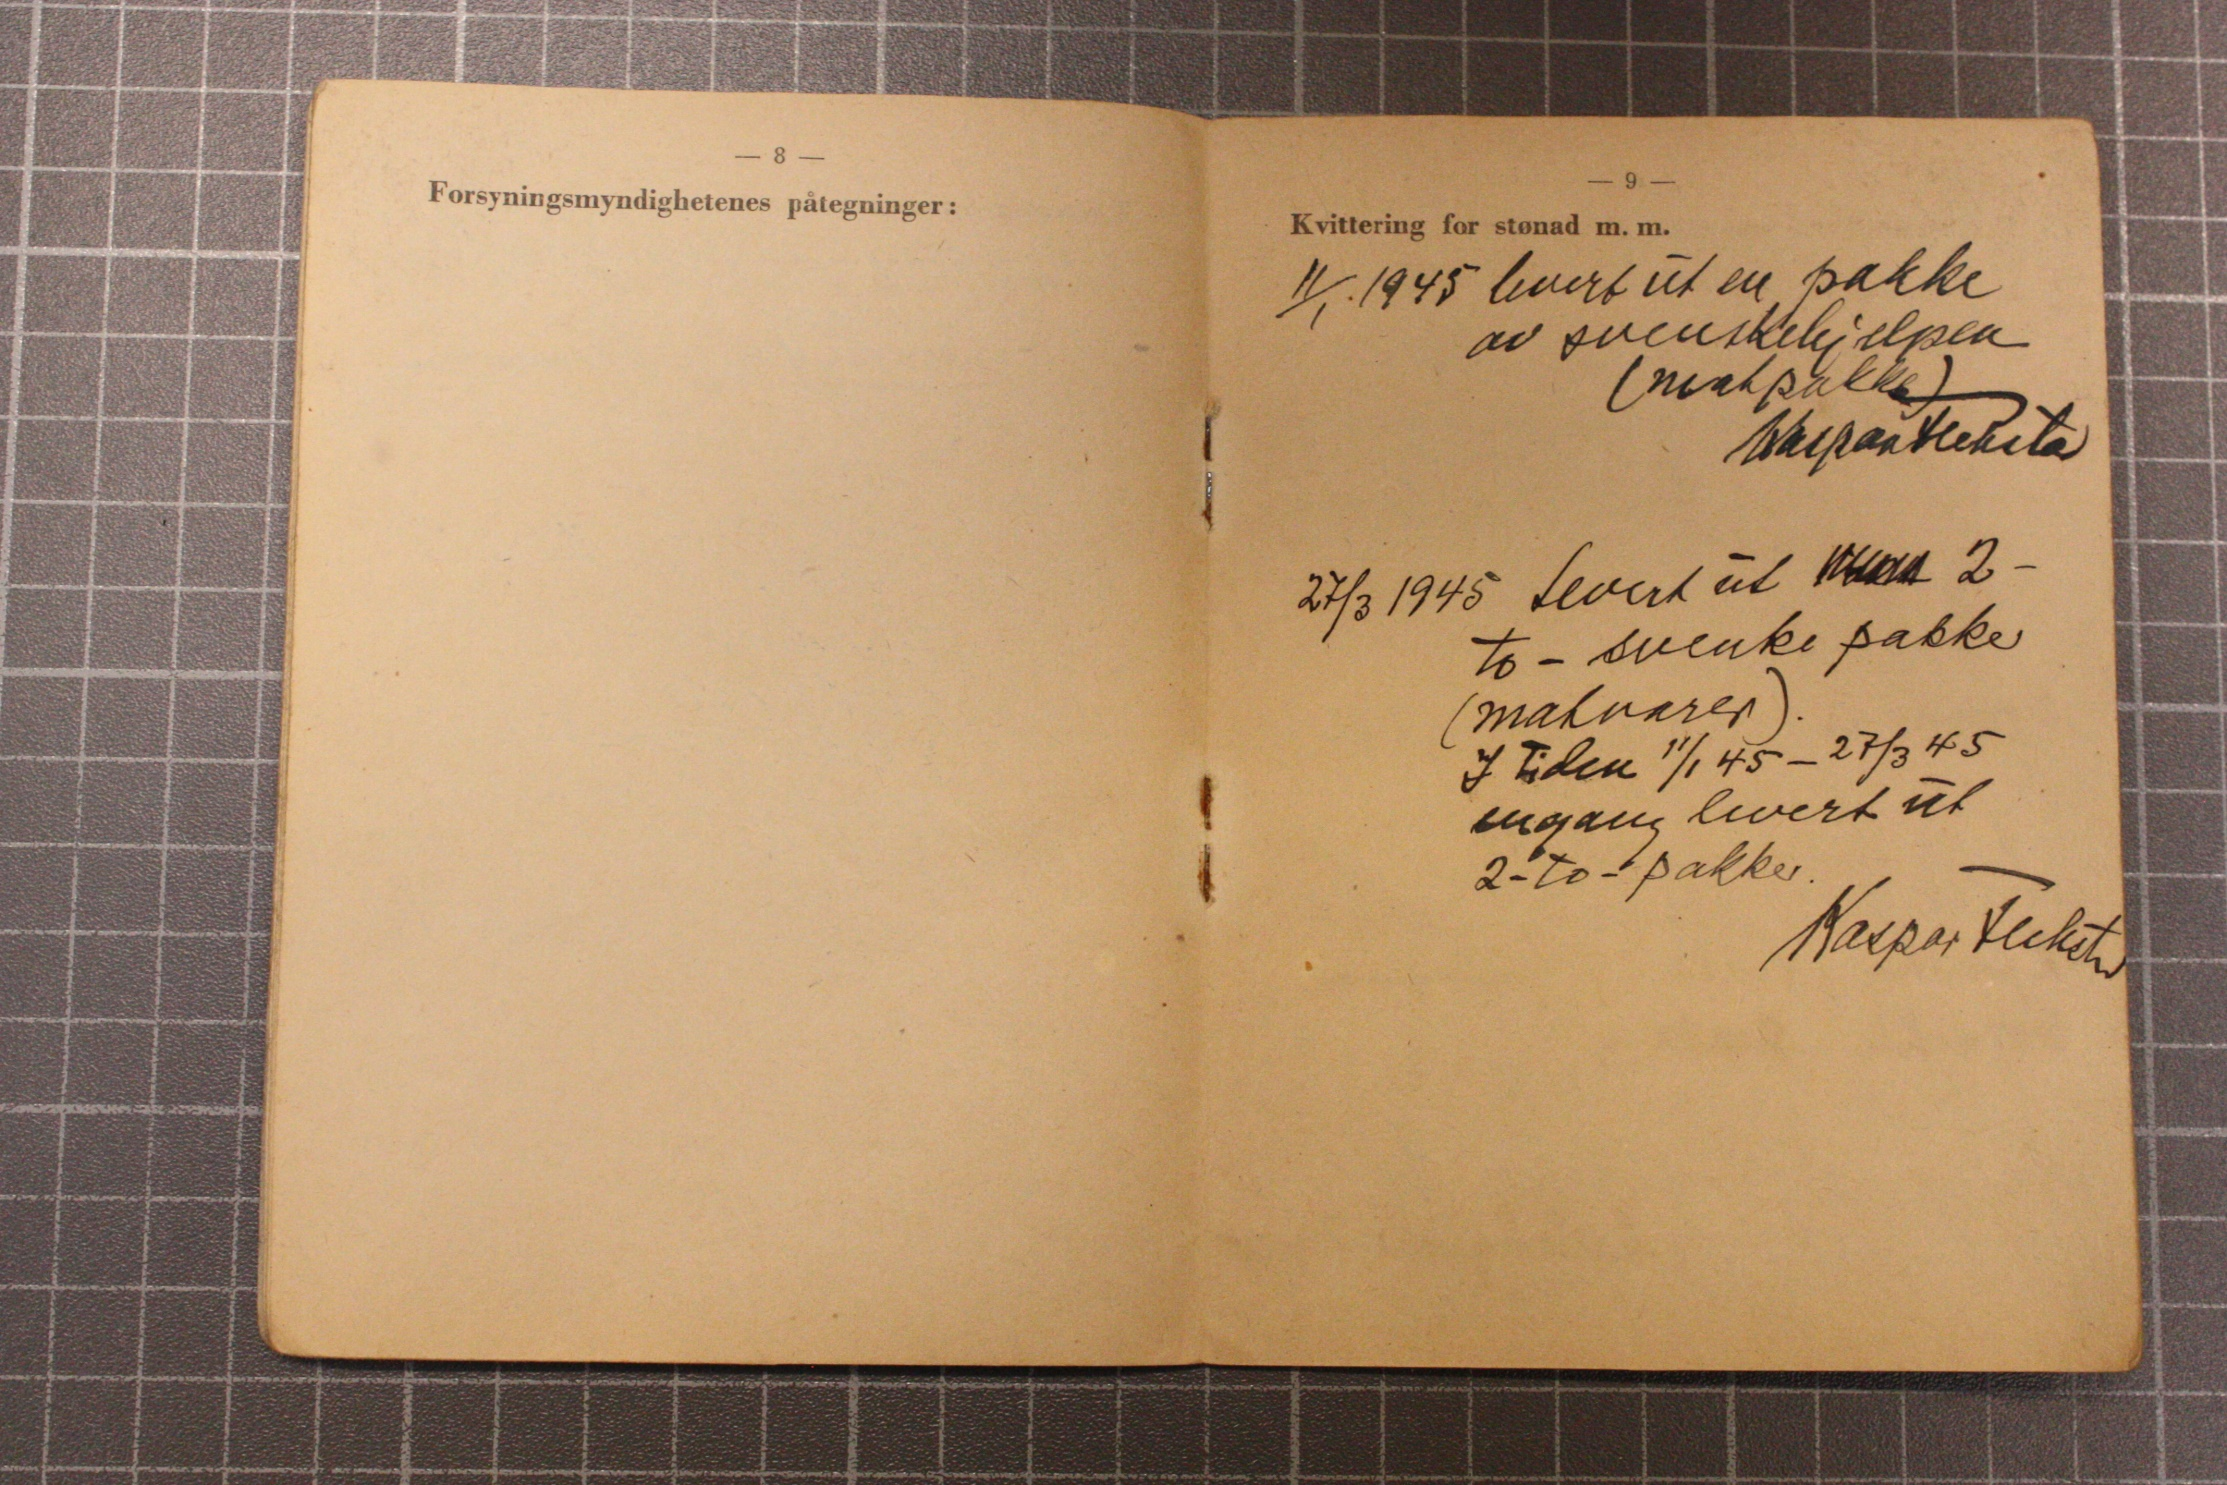 — 8 —
Forsyningsmyndighetenes påtegninger:
— 9 —
Kvittering for stønad m. m.
11/1. 1945 levert ut en pakke
av svenskehjelpen
(matpakke)
Kaspar
27/3 1945 Levert ut 2 –
to – svenke pakke
(matvarer).
I tiden 11/1 45 – 27/3 45
engang levert ut
2 - to - pakker.
Kaspar